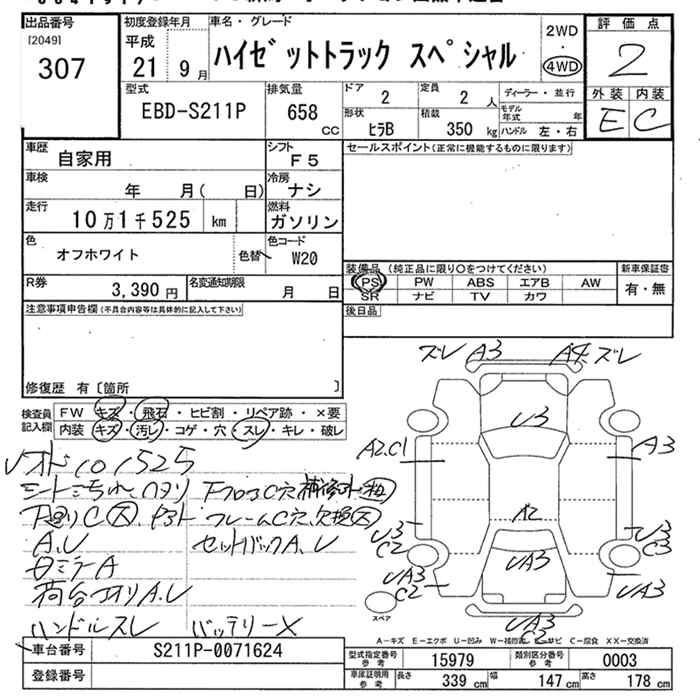 出品番号
[2049]
307
初度登録年月
平成
21 9月
車名・グレード
ハイゼットトラック スペシャル
2WD
・
4WD
評価点
2
外装 内装
E C
型式
EBD-S211P
排気量
658 CC
ドア
2
定員
2 人
ディーラー・並行
形状
ヒラB
積載
350 kg
モデル年式 年
ハンドル 左・右
車歴
自家用
シフト
F5
車検
年 月( 日)
冷房
ナシ
走行
10万1千525 km
燃料
ガソリン
色
オフホワイト
色替
色コード
W20
R券
3,390円
名変通知期限
月 日
セールスポイント(正常に機能するものに限ります)
装備品 (純正品に限り○をつけてください)
PS PW ABS エアB AW
SR ナビ TV カワ
新車保証書
有・無
後日品
注意事項申告欄(不具合内容等は具体的に記入して下さい)
修復歴 有〔箇所 〕
検査員記入欄
FW キズ・飛石・ヒビ割・リペア跡・×要
内装 キズ・汚レ・コゲ・穴・スレ・キレ・破レ
シート
下廻りC大
フレームC穴
A.U
セットバックA.U
ハンドルスレ
バッテリーX
ズレ A3
A4 ズレ
U3
A2.C1
A3
A2
U3
C2
UA3
U3
C3
UA3
C2
UA3
UA3
スペア
A-キズ E-エクボ U-凹み W-補修跡 S-サビ C-腐食 XX-交換済
車台番号
S211P-0071624
登録番号
型式指定番号 参考
15979
類別区分番号 参考
0003
車庫証明用 参考
長さ 339 cm
幅 147 cm
高さ 178 cm